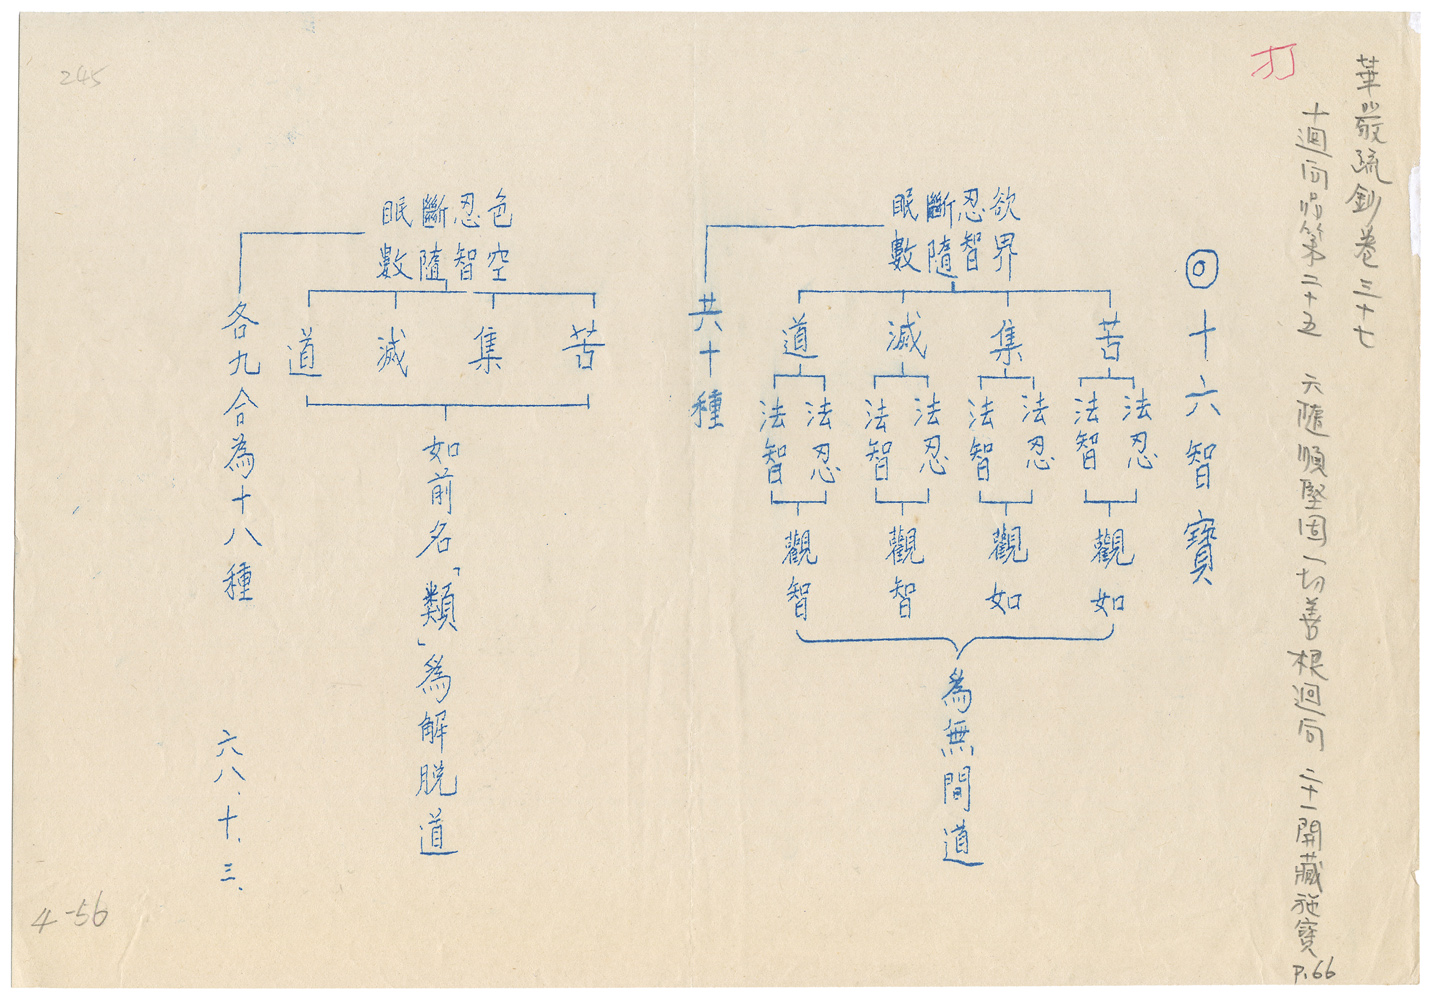 華嚴疏鈔卷三十七
十迴向品第二十五　六隨順堅固一切善根迴向　二十一開藏施寶　P.66
打
◎十六智寶
欲界
忍智
斷隨
眠數
共十種
苦
集
滅
道
法忍
法智
法忍
法智
法忍
法智
法忍
法智
觀如
觀如
觀智
觀智
為無間道
色空
忍智
斷隨
眠數
苦
集
滅
道
如前名「類」為解脫道
各九合為十八種
六八.十.三.
245
4-56